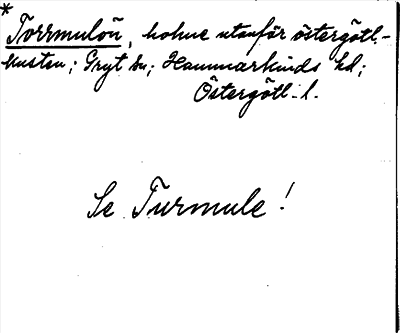 *
Torrmulön, holme utanför östergötl.-
kusten; Gryt sn; Hammarkinds hd;
Östergötl. l.
Se Turmule!